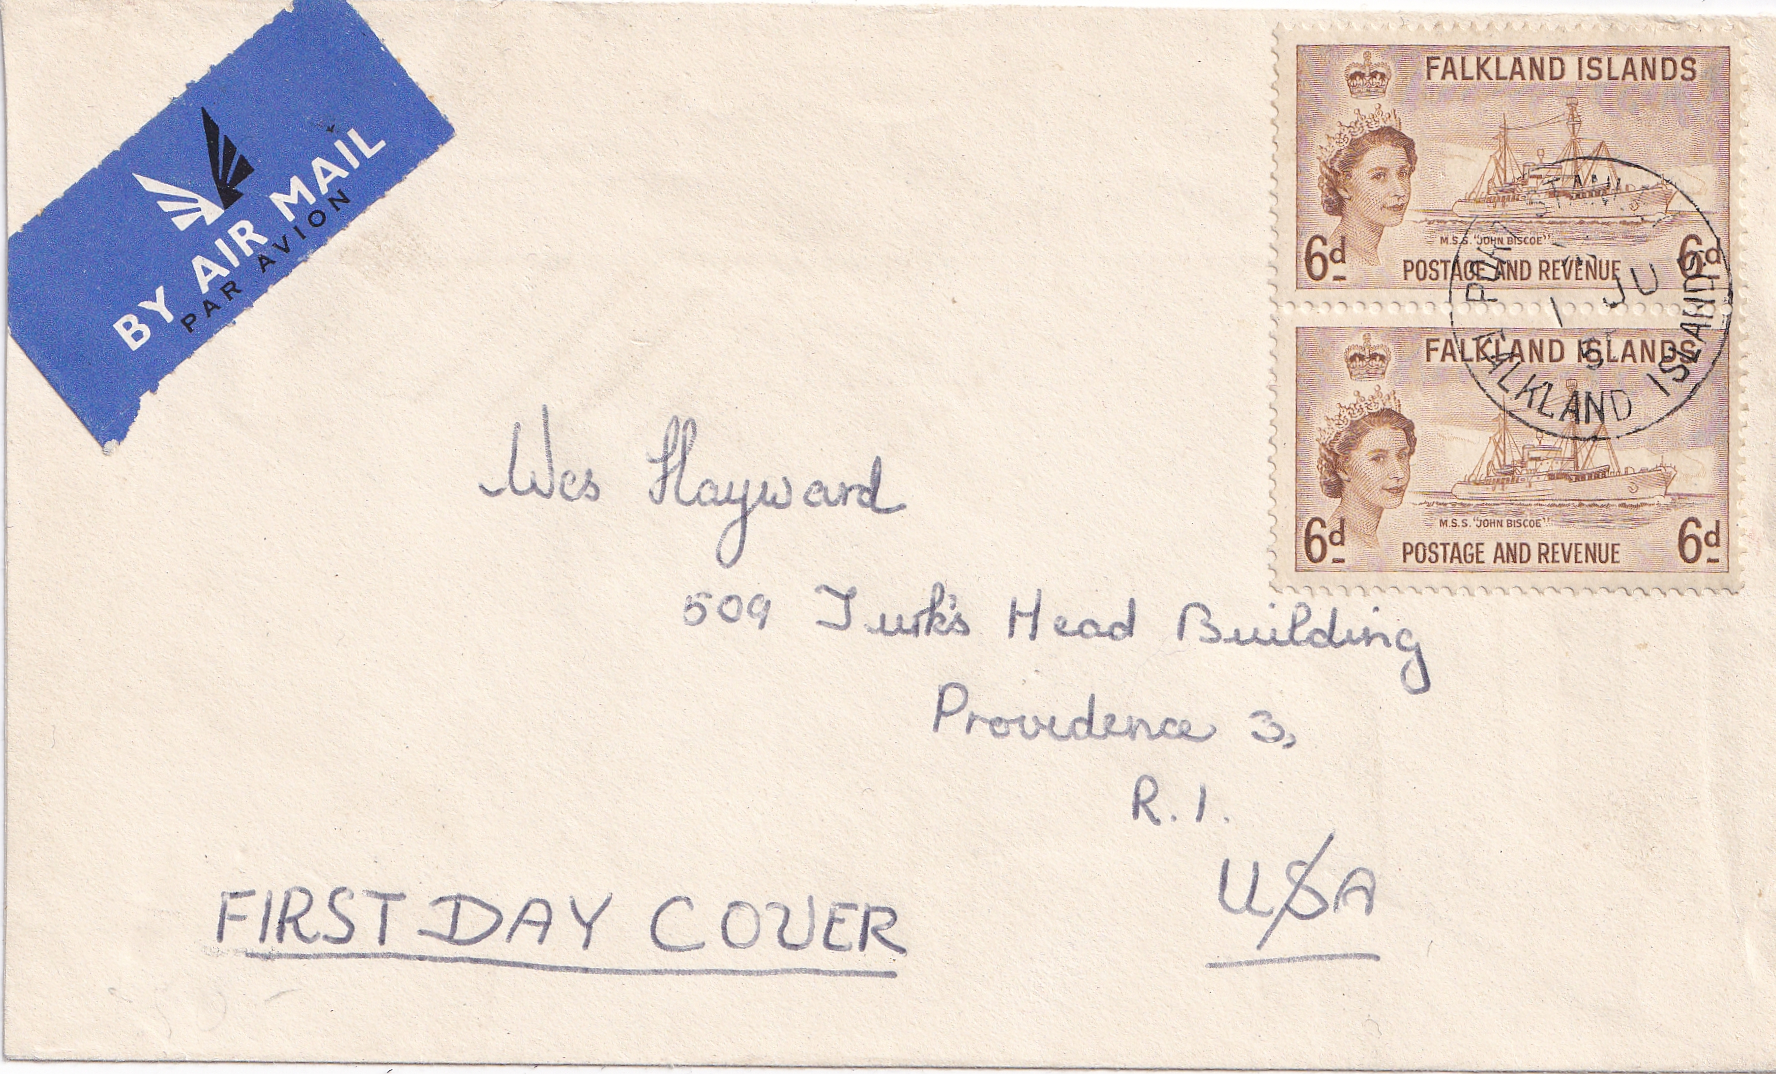 BY AIR MAIL
PAR AVION
FALKLAND ISLANDS
M.S.S. "JOHN BISCOE"
6d 6d
POSTAGE AND REVENUE
PORT STAN
1 JU
5
FALKLAND ISLANDS
FALKLAND ISLANDS
M.S.S. "JOHN BISCOE"
6d 6d
POSTAGE AND REVENUE
Wes Hayward
509 Turk's Head Building
Providence 3,
R.I.
USA
FIRST DAY COVER